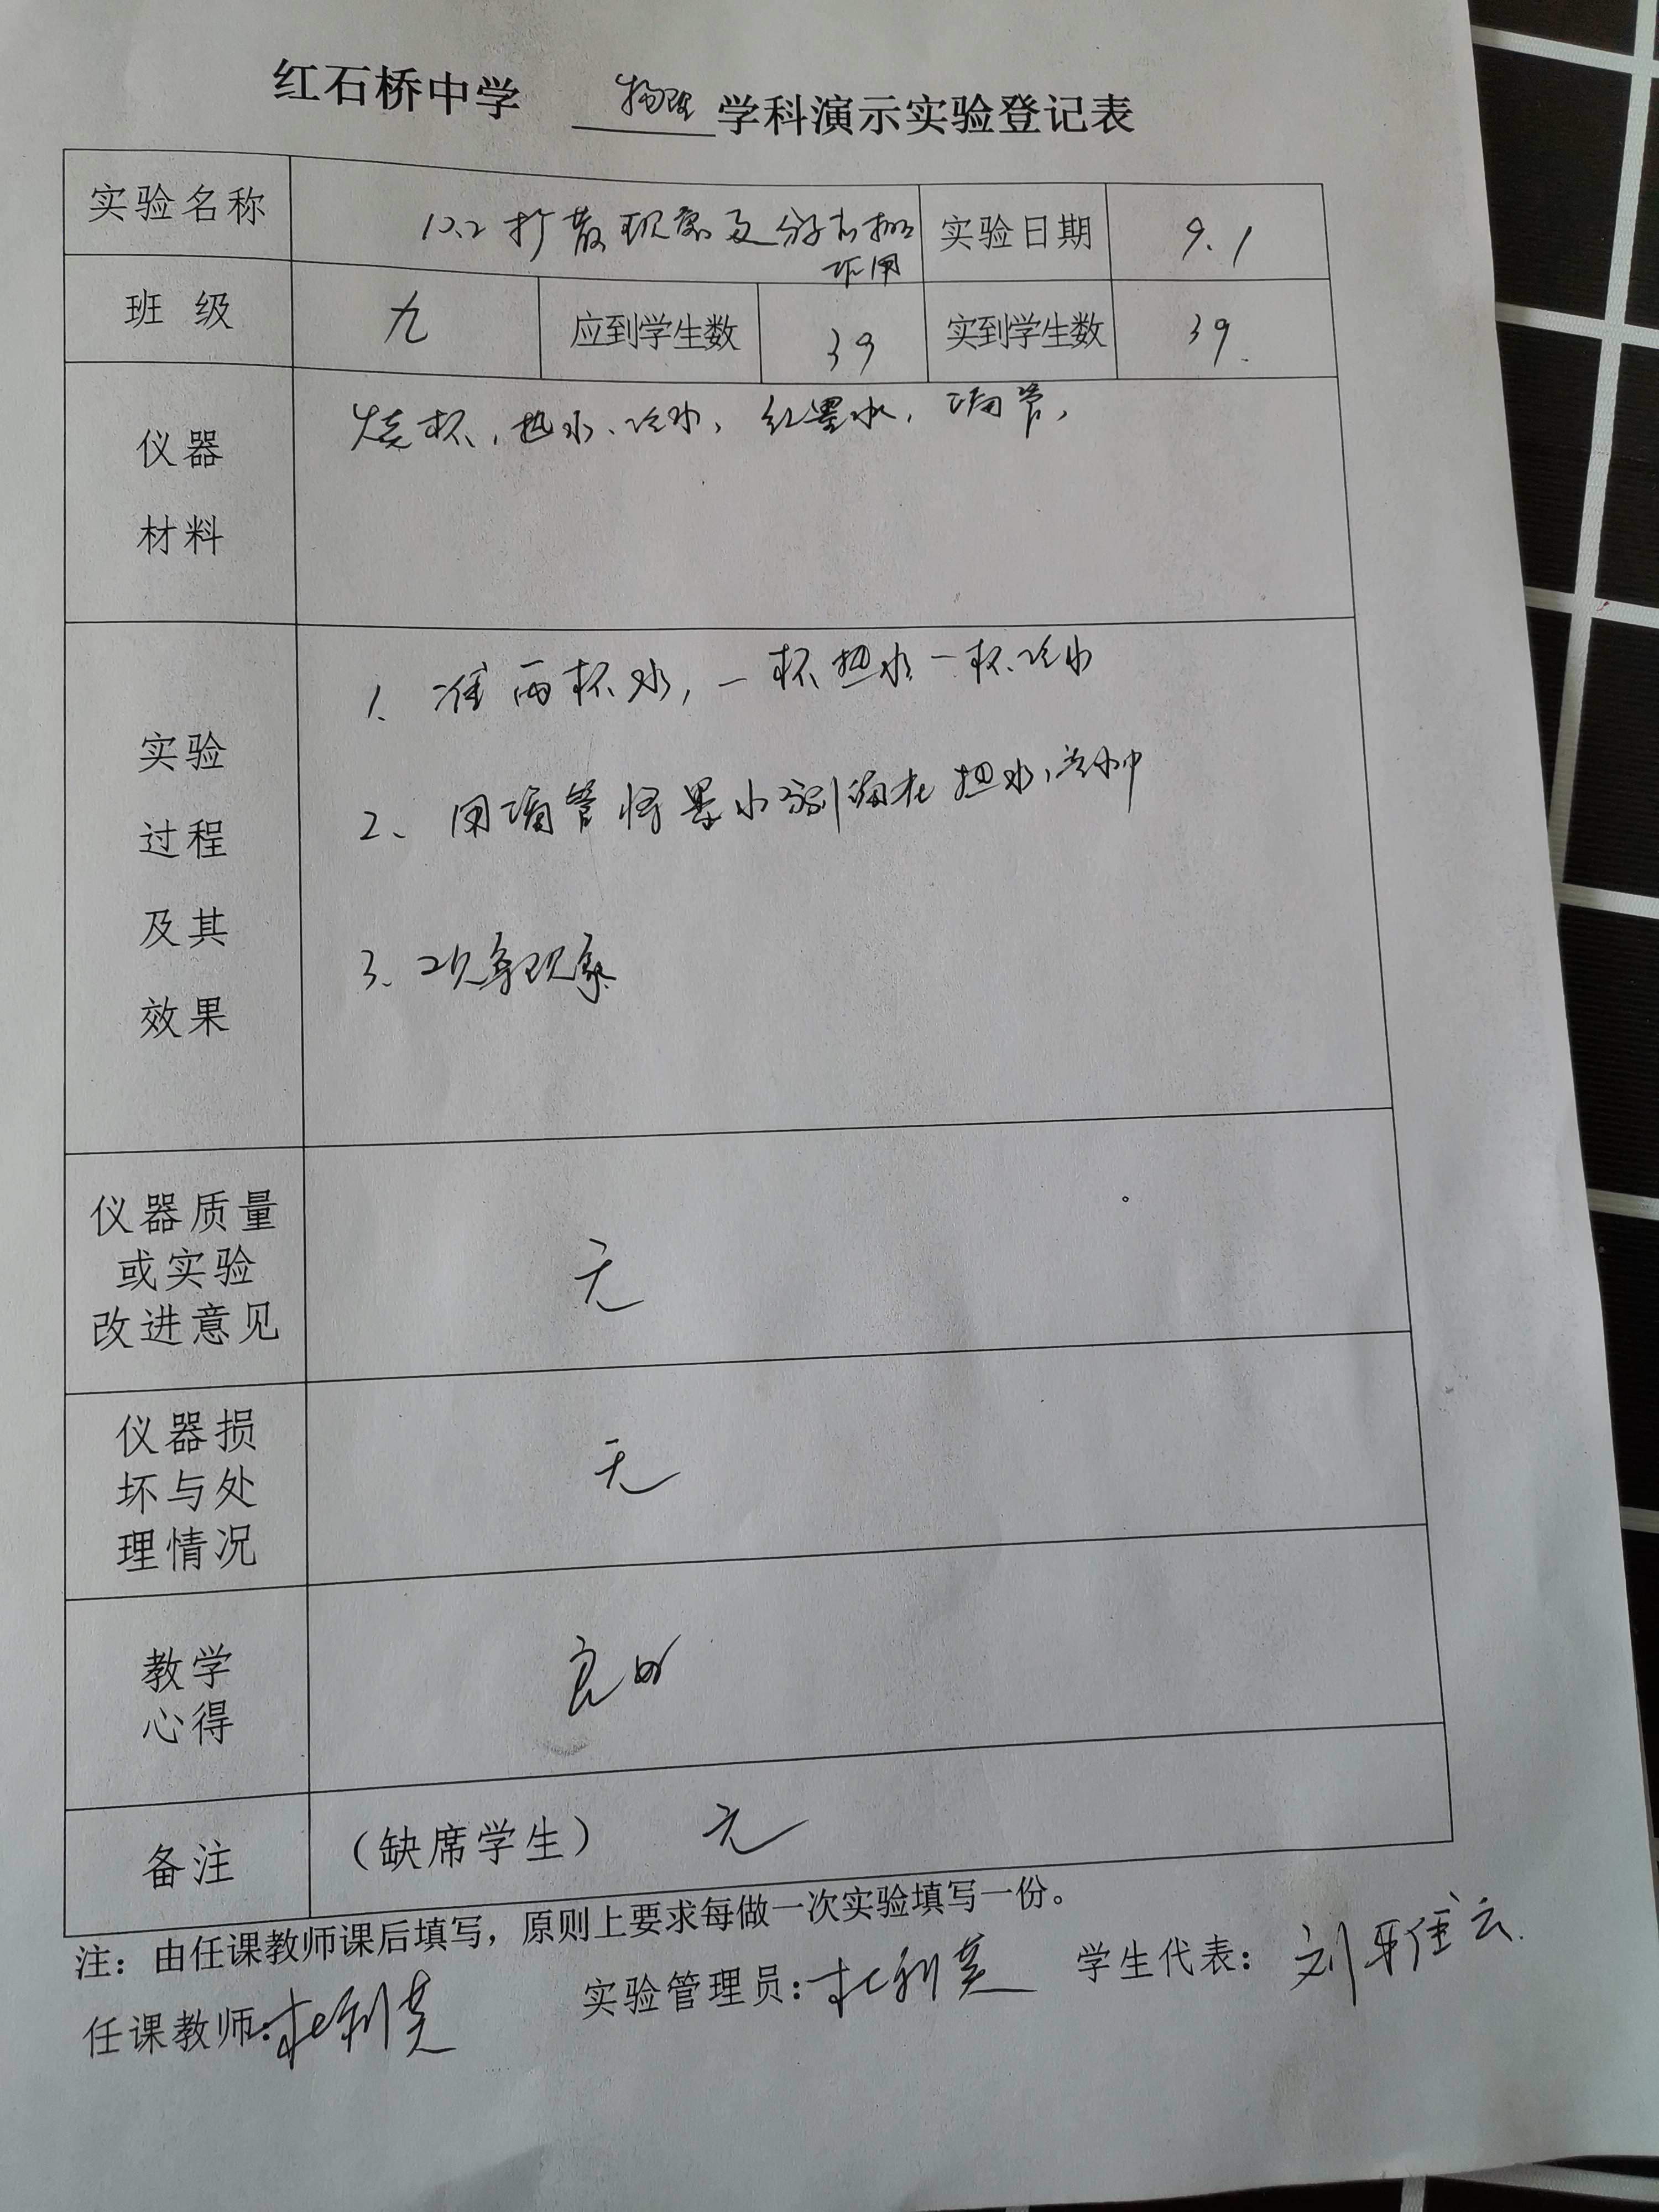 红石桥中学 物理 学科演示实验登记表
实验名称 扩散现象及分子 实验日期 9.1
作用
班 级 九 应到学生数 39 实到学生数 39
仪器 烧杯、热水、冷水、红墨水、滴管、
材料
1、准两杯水,一杯热水一杯冷水
实验
2、用滴管将墨水分别滴在热水,冷水中
过程
及其
3、观察现象
效果
仪器质量
或实验 无
改进意见
仪器损
坏与处 无
理情况
教学 良好
心得
备注 (缺席学生) 无
注:由任课教师课后填写,原则上要求每做一次实验填写一份。
任课教师: 实验管理员: 学生代表:刘